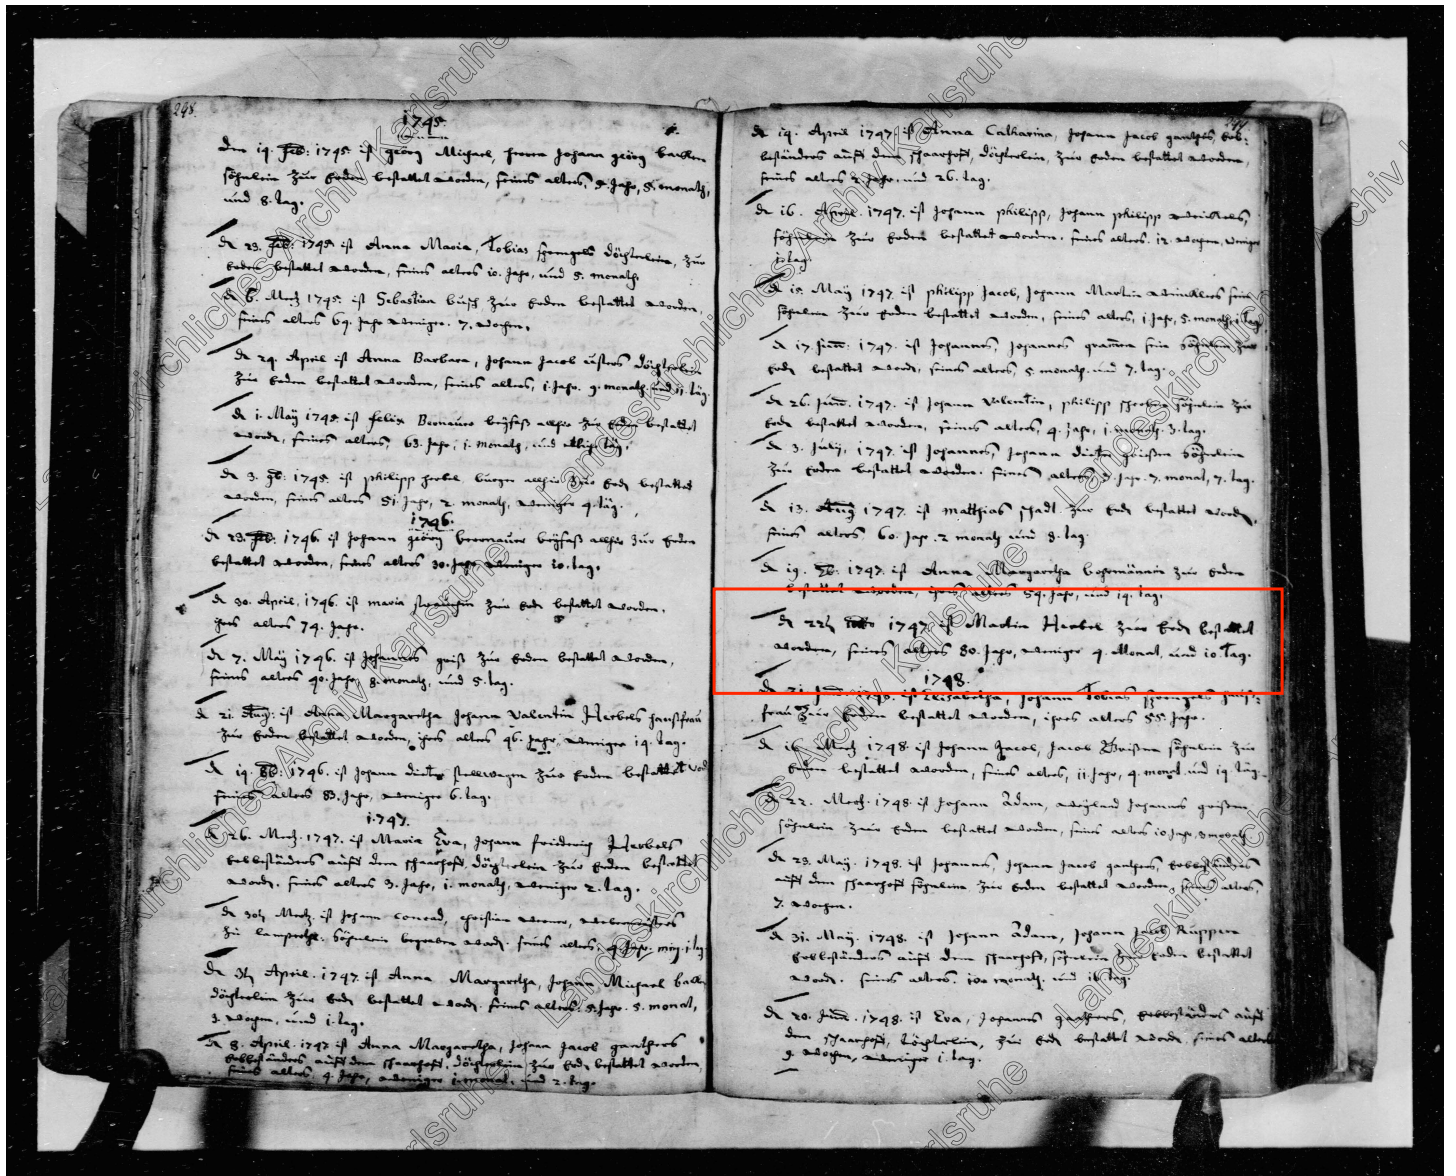 298.
1745.
den 19. Feb: 1745 ist Georg Michael, Herrn Johann Georg
söhnlein zur Erden bestattet worden, seines alters, 5. Jahr, 8. monath,
und 8. tag.
d 23. Feb: 1745 ist Anna Maria, Tobias Sprengels döchterlein, zur
Erden bestattet worden, seines alters 10. Jahr, und 5. monath.
d 6. Mertz 1745. ist Sebastian Busch zur Erden bestattet worden,
seines alters 69. Jahr weniger 7. wochen.
d 29. April ist Anna Barbara, Johann Jacob döchterlein
zur Erden bestattet worden, seines alters, 1. Jahr. 9. monath und 11. täg.
d 1. May 1745 ist Felix Bernauer beysaß allhier zur Erden bestattet
word, seines alters, 63. Jahr, 1. monath, und täg.
d 3. 1745. ist Philipp Herbel burger allhier zur Erd bestattet
worden, seines alters 51. Jahr, 2. monath, weniger 4. täg.
1746.
d 23. Feb: 1746. ist Johann Georg Bernauer beysaß allhier zur Erden
bestattet worden, seines alters 30. Jahr, weniger 20. tag.
d 30. April. 1746. ist Maria zur Erd bestattet worden,
ihres alters 74. Jahr.
d 7. May 1746. ist Johannes Geiß zur Erden bestattet worden,
seines alters 40. Jahr, 8. monath, und 5. tag.
d 21. Aug: ist Anna Margaretha Johann Valentin Herbels haußfrau
zur Erden bestattet worden, ihres alters 46. Jahr, weniger 14. tag.
d 19. 1746. ist Johann Dieter Stellwagen zur Erden bestattet word
seines alters 83. Jahr, weniger 6. tag.
1747.
d 26. Mertz. 1747. ist Maria Eva, Johann Friderich Herbels
Erbbeständers auff dem Schaarhoff, döchterlein zur Erden bestattet
word. seines alters 3. Jahr, 1. monath, weniger 2. tag.
d 30 Mertz. ist Johann Conrad, Christian
zu söhnlein begraben word. seines alters, 4. Jahr. 1. tag
d 3 April. 1747. ist Anna Margaretha, Johann Michael
döchterlein zur Erd bestattet word. seines alters. 5. Jahr. 5. monat,
3. wochen, und 1. tag.
d 8. April. 1747 ist Anna Margaretha, Johann Jacob Ganthers
Erbbeständers auff dem Schaarhoff, döchterlein zur Erd bestattet worden,
seines alters, 4. Jahr, weniger 1. monat, und 2. tag.
d 14. April 1747. ist Anna Catharina, Johann Jacob Ganthers Erb-
beständers auff dem Schaarhoff, döchterlein, zur Erden bestattet worden,
seines alters 2. Jahr, und 26. tag.
d 16. April. 1747. ist Johann Philipp, Johann Philipp Winklers,
söhnlein zur Erden bestattet worden. seines alters. 12. wochen, weniger
1. tag
d 15. May 1747. ist Philipp Jacob, Johann Martin Winklers sein
söhnlein zur Erden bestattet worden, seines alters, 1. Jahr, 5. monath, 1. tag
d 17. 1747. ist Johannes, Johannes sein söhnlein zur
Erd bestattet word, seines alters, 5 monath. und 7. tag.
d 26. 1747. ist Johann Valentin, Philipp söhnlein zur
Erd bestattet worden, seines alters, 4. Jahr, 1. monath. 3. tag.
d 3. July, 1747. ist Johannes, Johann Dieter Geißen söhnlein
zur Erden bestattet worden. seines alters, 3. Jahr. 7. monat, 7. tag.
d 13. Aug 1747. ist Matthias Stadl. zur Erd bestattet word,
seines alters 60. Jahr. 2 monath und 8. tag
d 19. 1747. ist Anna Margaretha zur Erden
bestattet worden, ihres alters 54. Jahr, und 14. tag.
d 22 1747. ist Martin Herbel zur Erd bestattet
worden, seines alters 80. Jahr, weniger 4 Monat, und 10. tag.
1748.
d 21. 1748. ist Elisabetha, Johann Tobias Sprengels hauß-
frau zur Erden bestattet worden, ihres alters 55. Jahr.
d 16. Mertz 1748. ist Johann Jacob, Jacob söhnlein zur
Erden bestattet worden, seines alters, 11. Jahr, 4. monat. und 19. täg.
d 22. Mertz. 1748. ist Johann Adam, weyland Johannes Geißen
söhnlein zur Erden bestattet worden, seines alters 10 Jahr, 3 monath
d 23. May. 1748. ist Johannes, Johann Jacob Ganthers, Erbbeständers
auff dem Schaarhoff söhnlein zur Erden bestattet worden, seines alters,
7. wochen.
d 31. May. 1748. ist Johann Adam, Johann Jacob Ruppen
Erbbeständers auff dem Schaarhoff, söhnlein zur Erden bestattet
word. seines alters. monath. und tag.
d 20. 1748. ist Eva, Johannes Ganthers, Erbbeständers auff
dem Schaarhoff, töchterlein, zur Erd bestattet word, seines alters
9. wochen, weniger 1. tag.
Landeskirchliches Archiv Karlsruhe